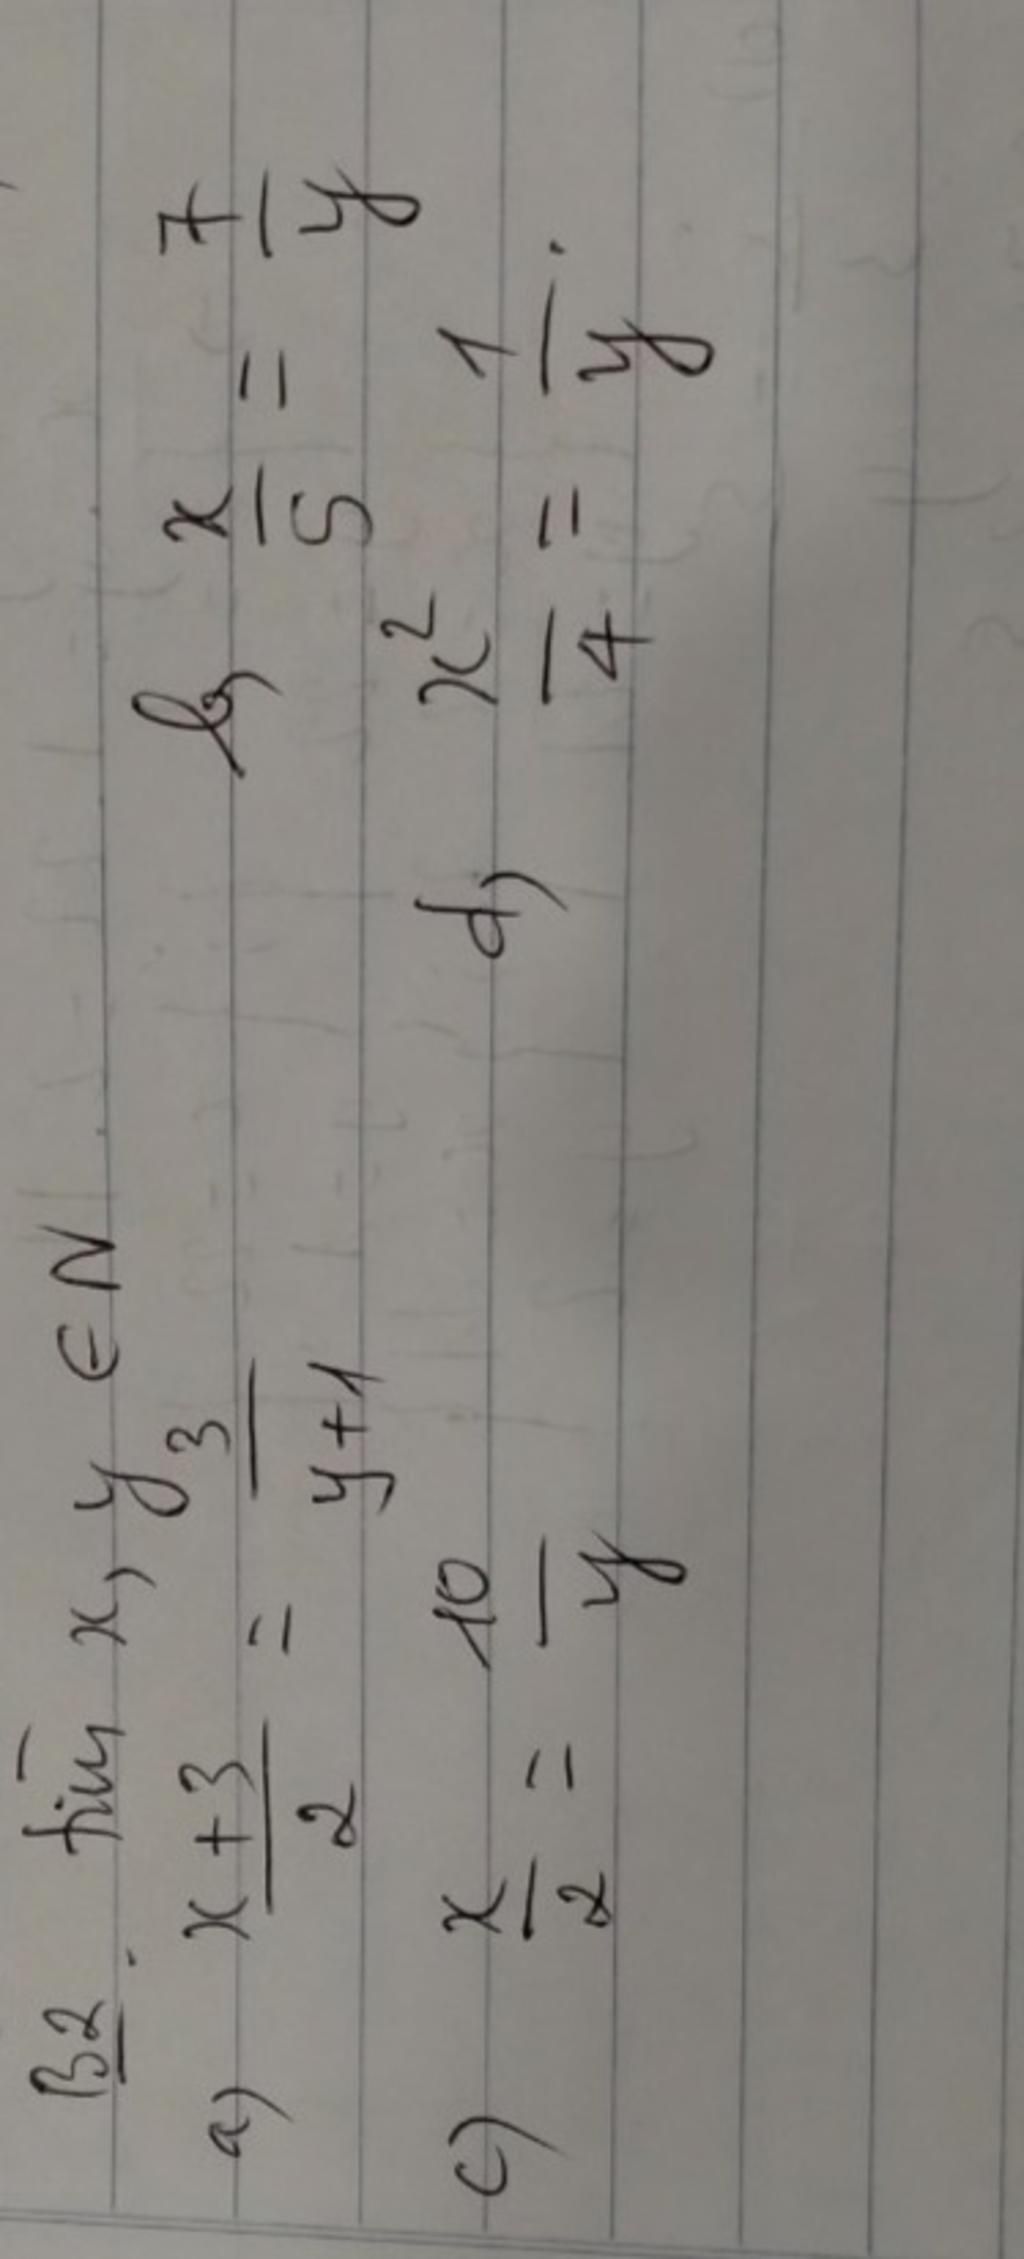 B2. Tìm x, y ∈ N
a) x+3/2 = 3/y+1 b) x/5 = 7/y
c) x/2 = 10/y d) x²/4 = 1/y.